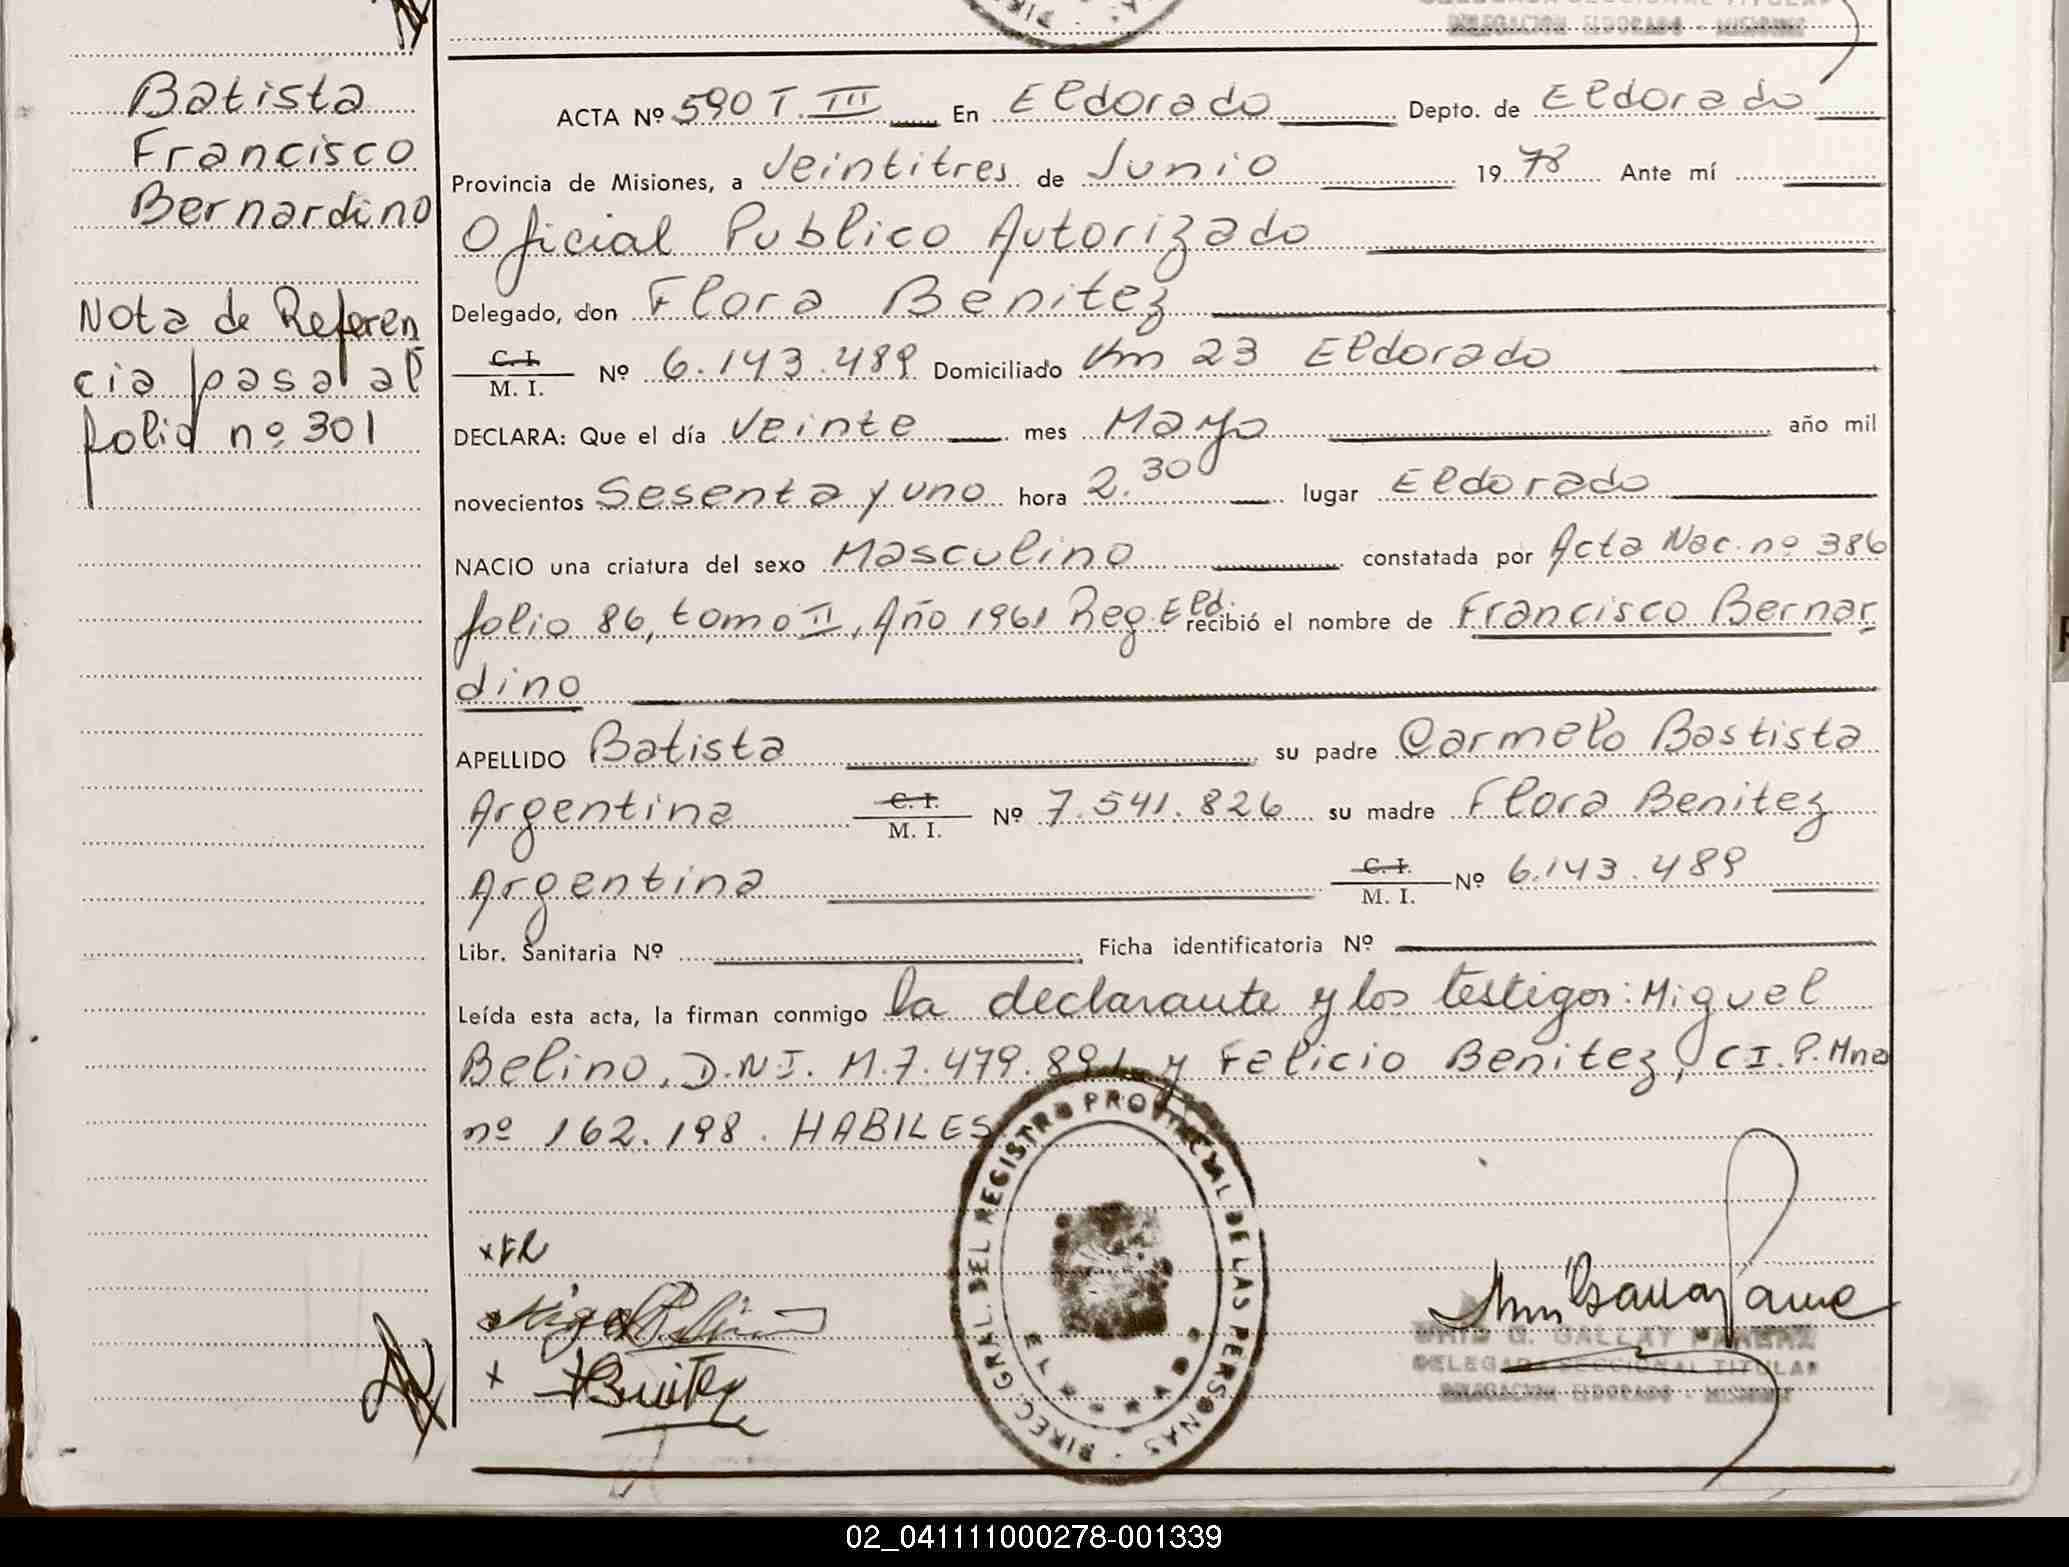 Batista
Francisco
Bernardino
Nota de Referen
cia pasa al
folio nº 301
DELEGACION ELDORADO - MISIONES
ACTA Nº 590 T. III En Eldorado Depto. de Eldorado
Provincia de Misiones, a Veintitres de Junio 1978 Ante mí
Oficial Publico Autorizado
Delegado, don Flora Benitez
C. I.
M. I. Nº 6.143.489 Domiciliado Km 23 Eldorado
DECLARA: Que el día Veinte mes Mayo año mil
novecientos Sesenta y uno hora 2.30 lugar Eldorado
NACIO una criatura del sexo Masculino constatada por Acta Nac. nº 386
folio 86, tomo II, Año 1961 Reg. Eld. recibió el nombre de Francisco Bernar
dino
APELLIDO Batista su padre Carmelo Bastista
Argentina C. I. M. I. Nº 7.541.826 su madre Flora Benitez
Argentina C. I. M. I. Nº 6.143.489
Libr. Sanitaria Nº Ficha identificatoria Nº
Leída esta acta, la firman conmigo la declarante y los testigos: Miguel
Belino, D.N.I. M. 7.479.891 y Felicio Benitez, CI. P. Mnes
nº 162.198. HABILES
DIREC. GRAL. DEL REGISTRO PROVINCIAL DE LAS PERSONAS
DELEGADA SECCIONAL TITULAR
DELEGACION ELDORADO - MISIONES
02_041111000278-001339